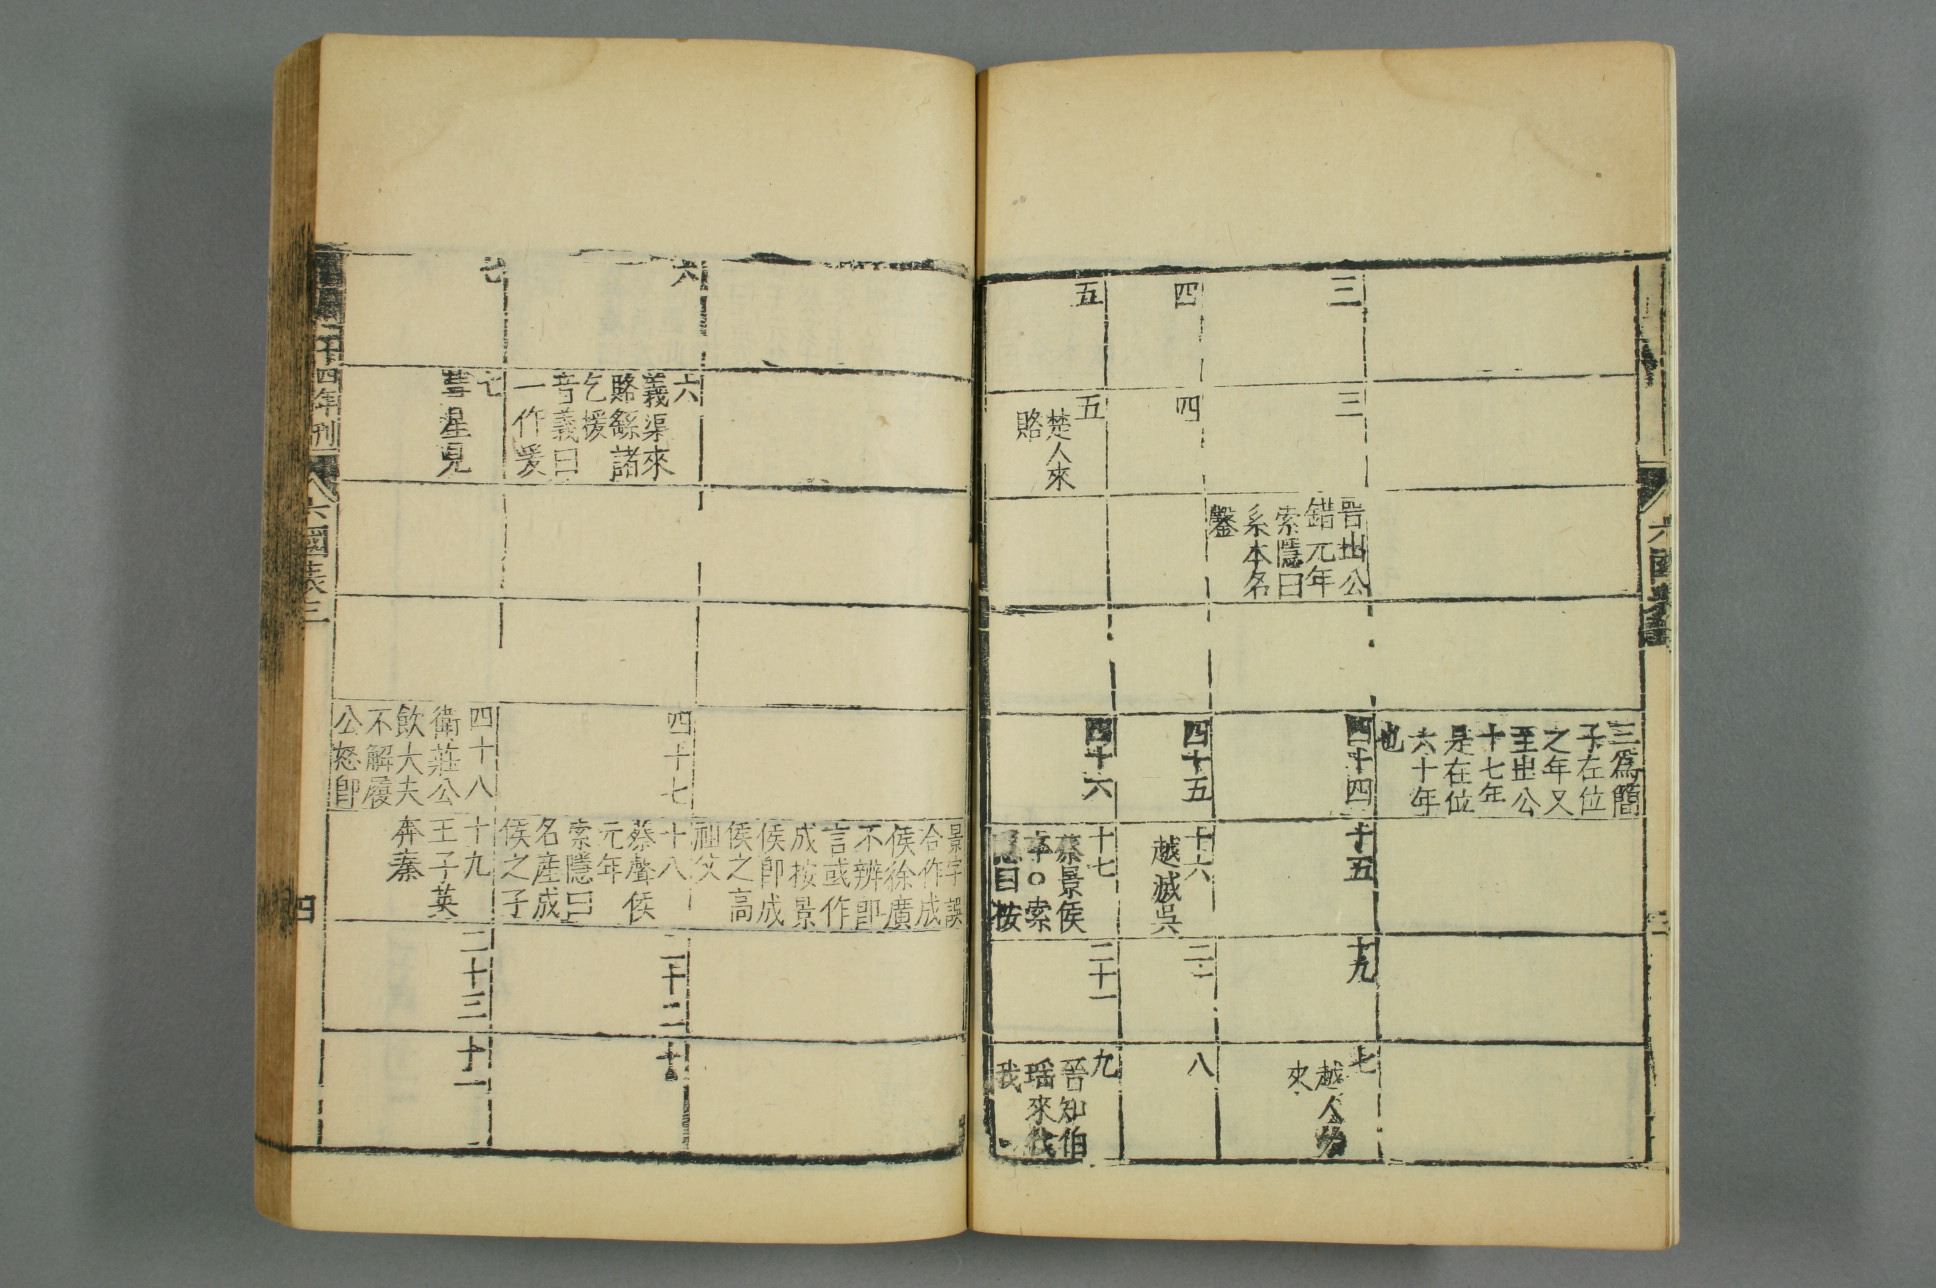 三爲簡
子在位
之年又
至出公
十七年
是在位
六十年
也
三
三
晉出公
錯元年
索隱曰
系本名
鑿
四十四
十五
十九
七
越人始
來
四
四
四十五
十六
越滅吳
八
五
五
楚人來
賂
四十六
十七
蔡景侯
卒○索
隱曰按
二十一
九
晉知伯
瑶來伐
我
景字誤
合作成
侯徐廣
不辨即
言或作
成按景
侯即成
侯之高
祖父
六
六
義渠來
賂繇諸
乞援
音義曰
一作爰
四十七
十八
蔡聲侯
元年
索隱曰
名產成
侯之子
二十二
十
七
七
彗星見
四十八
衛莊公
飲大夫
不解履
公怒即
十九
王子英
奔秦
二十三
十一
四年刊
六國表三
四